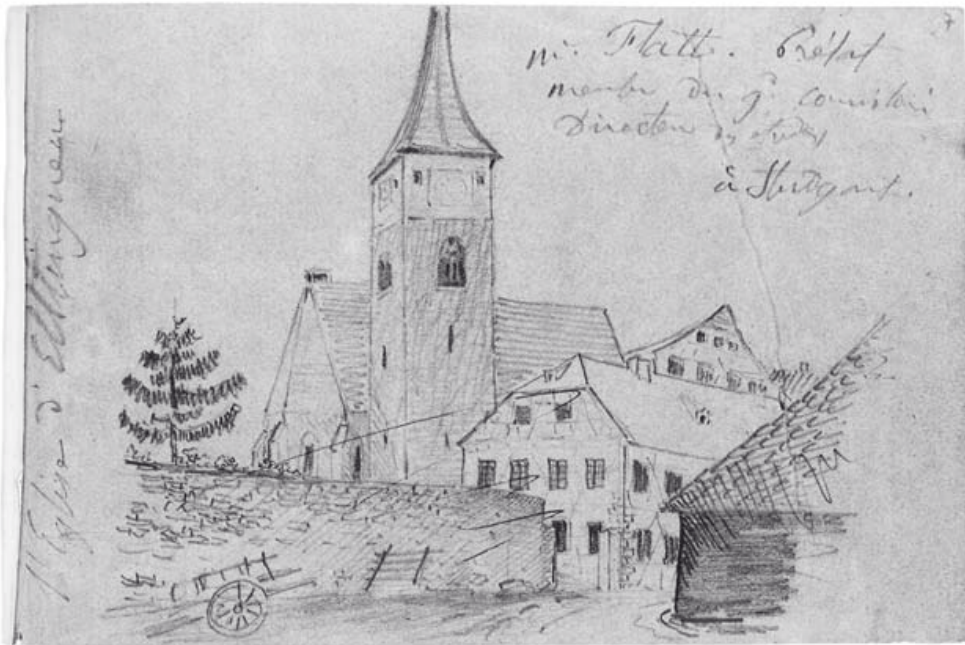 mr. Flatt. Prélat
membre du gd consistoire
Directeur des études
à Stutgart.
l'Eglise d'Eltinguen